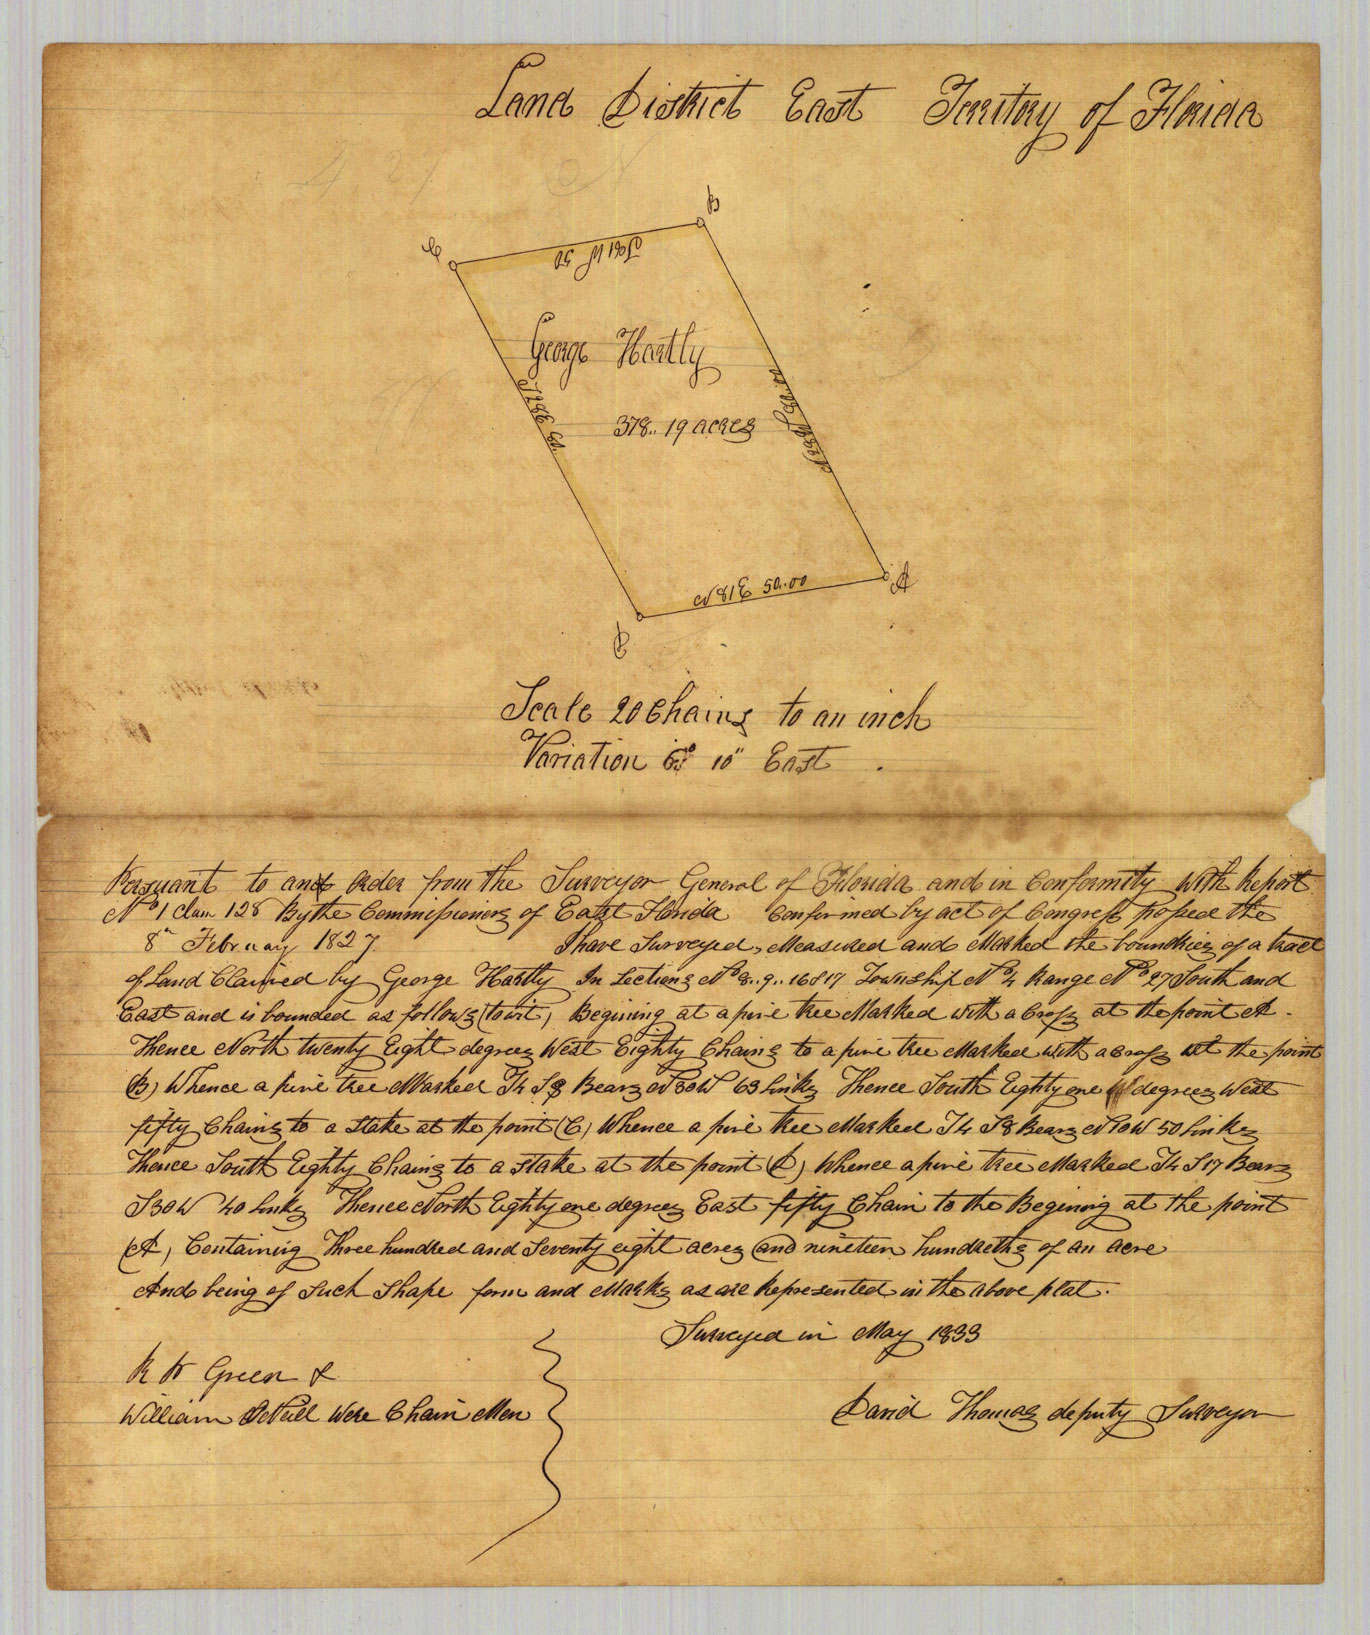 Land District East Territory of Florida
B
C
S 81 W 50
George Hartly
378.. 19 acres
S 28 E 80.
N 28 W 80.00
N 81 E 50.00
A
D
Scale 20 Chains to an inch
Variation 6° 10" East
Persuant to and order from the Surveyor General of Florida and in Conformity With Report
No 1 Claim 128 By the Commissioners of East Florida Confirmed by act of Congress passed the
8th February 1827. I have Surveyed, Measured and Marked the boundries of a tract
of Land Claimed by George Hartly In Sections No 8.. 9.. 16 & 17 Township No 4 Range No 27 South and
East and is bounded as follows (towit) Begining at a pine tree Marked with a Cross at the point A.
Thence North twenty Eight degrees West Eighty Chains to a pine tree Marked with a Cross at the point
(B) Whence a pine tree Marked T4 S8 Bears N30W 63 Links Thence South Eighty one degrees West
fifty Chains to a Stake at the point (C) Whence a pine tree Marked T4 S8 Bears N10W 50 Links
Thence South Eighty Chains to a Stake at the point (D) Whence a pine tree Marked T4 S17 Bears
S30W 40 Links Thence North Eighty one degrees East fifty Chain to the Begining at the point
(A) Containing Three hundred and Seventy eight acres and nineteen hundreths of an acre
And being of Such Shape form and Marks as are Represented in the above plat.
Surveyed in May 1833
R W Green &
William Were Chain Men
David Thomas deputy Surveyor